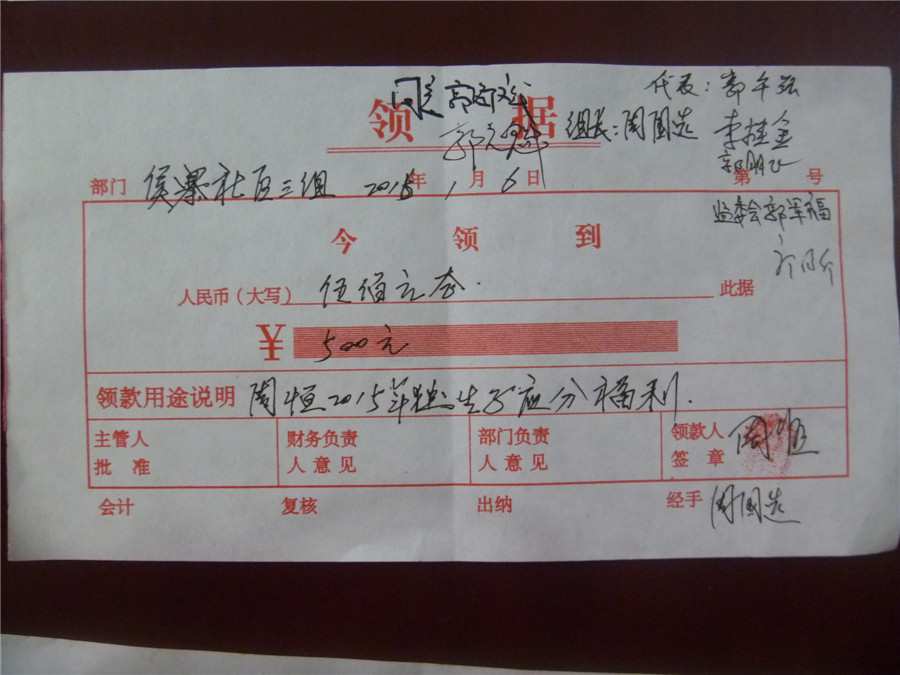 领据
同意
组长：周国选
代表：
李桂金
部门 侯寨社区三组 2015年1月6日 第 号
监委会郭军福
今领到
人民币（大写） 伍佰元整. 此据
¥ 500元
领款用途说明 周恒2015年独生子应分福利.
主管人批准 财务负责人意见 部门负责人意见 领款人签章 周恒
会计 复核 出纳 经手 周国选